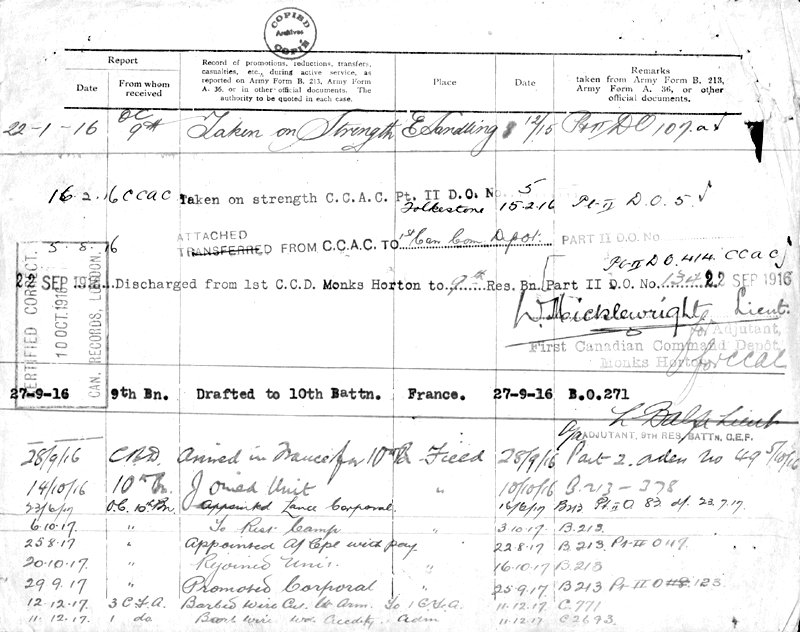 COPIED
Archives
COPIE
Report
Record of promotions, reductions, transfers, casualties, etc., during active service, as reported on Army Form B. 213, Army Form A. 36, or in other official documents. The authority to be quoted in each case.
Place
Date
Remarks
taken from Army Form B. 213, Army Form A. 36, or other official documents.
Date
From whom received
22-1-16 OC 9th Taken on Strength E Sandling 12/15 Pt II DO 107
16.2.16 CCAC Taken on strength C.C.A.C. Pt. II D.O. No 5
Folkestone 15-2-16 Pt-II D.O. 5
5.5.16 ATTACHED
TRANSFERRED FROM C.C.A.C. TO 1st Can Com Depot PART II D.O. No
Pt-II DO 414 CCAC
22 SEP 1916 Discharged from 1st C.C.D. Monks Horton to 9th Res. Bn. Part II D.O. No. 22 SEP 1916
W. Micklewright Lieut.
for Adjutant,
First Canadian Command Depot,
Monks Horton
for CCAC
CERTIFIED CORRECT.
10 OCT. 1916
CAN. RECORDS, LONDON.
27-9-16 9th Bn. Drafted to 10th Battn. France. 27-9-16 B.O.271
Lieut
ADJUTANT, 9TH RES. BATTN. C.E.F.
28/9/16 CBD Arrived in France for 10th Bn Field 28/9/16 Part 2. orden No 49 5/10/16
14/10/16 10th Bn. Joined Unit " 10/10/16 B.213-378
23/6/17 O.C. 10th Bn Appointed Lance Corporal. " 16/6/17 B213 Pt II O 83 d/. 23.7.17.
6.10.17 " To Rest Camp " 3.10.17 B.213.
25.8.17 " Appointed A/Cpl with pay 22.8.17 B.213 Pt-II O 117.
20.10.17 " Rejoined Unit. " 16.10.17 B.213
29.9.17 " Promoted Corporal " 25.9.17 B213 Pt II O 123.
12.12.17. 3 C.F.A. Barbed Wire Cut. Lt Arm. To 1 C.F.A. 11.12.17 C.771
11.12.17. 1 do Barb Wire Adm 11.12.17 C2693.